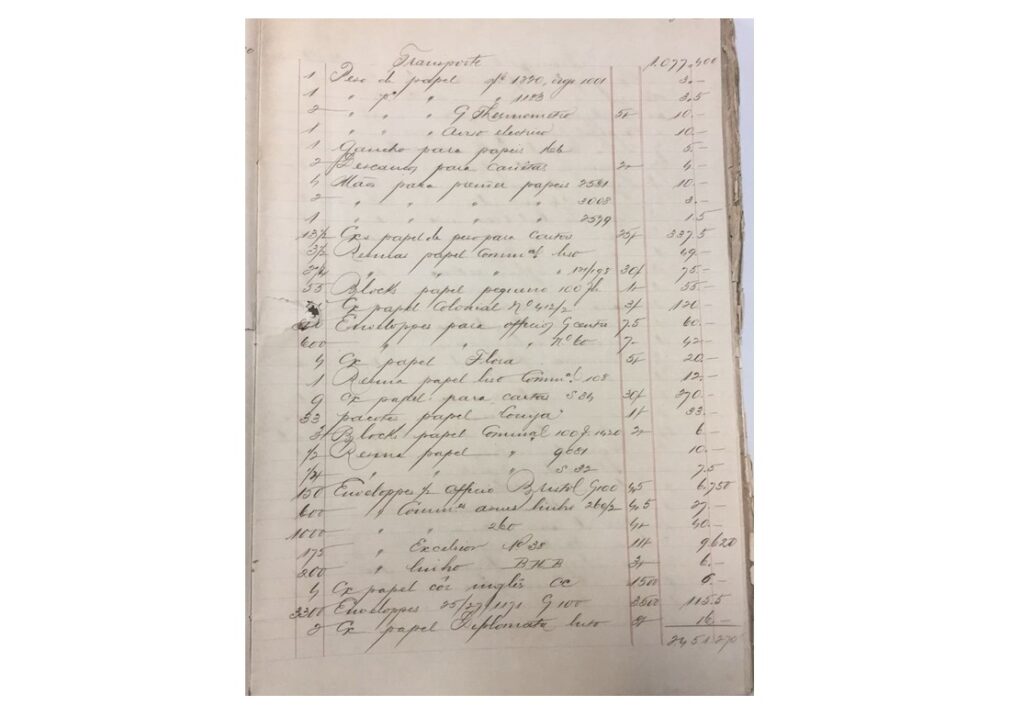 Transporte 1.077,400
1 Peso de papel 1001 3.-
1 " " " 1183 3.5
2 " " " G Thermometro 5# 10.-
1 " " " Aviso electrico 10.-
1 Gancho para papeis 5.-
2 Descanços para canetas 2# 4.-
4 Mãos para prender papeis 2581 10.-
2 " " " " 3008 3.-
1 " " " " 2579 1.5
13½ Cxs papel de peso para Cartas 25# 337.5
3½ Resmas papel Comm.al liso 49.-
2½ " " " " 30# 75.-
55 Blocks papel pequeno 100 fl. 1# 55.-
Cx papel Colonial Nº 412/2 3# 120.-
Enveloppes para officio G 7.5 60.-
600 " " " Nº 60 7.- 42.-
4 Cx papel Flora 5# 20.-
1 Resma papel liso Comm.al 108 12.-
9 Cx papel para cartas S 34 30# 270.-
33 pacotes papel 1# 33.-
3 Blocks papel Commal 100 f. 1420 2# 6.-
½ Resma papel " 9681 10.-
¼ " " " S 32 7.5
150 Enveloppes p. officio Bristol G100 4,5 6.750
600 " Comm.es linho 260/2 4.5 27.-
1000 " " 260 4# 40.-
175 " Excelsior Nº 38 9.620
200 " linho B.H.B 3# 6.-
4 Cx papel côr inglês CC 1500 6.-
3300 Enveloppes 25/27 1171 G 100 3500 115.5
2 Cx papel Diplomata liso 8# 16.-
2451.270